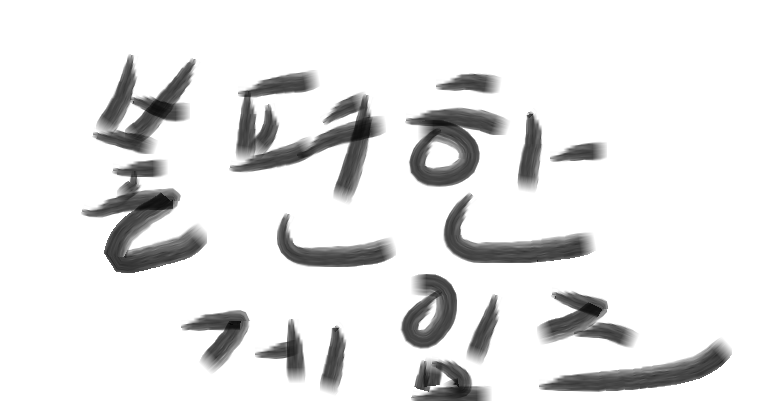 불편한
게임즈